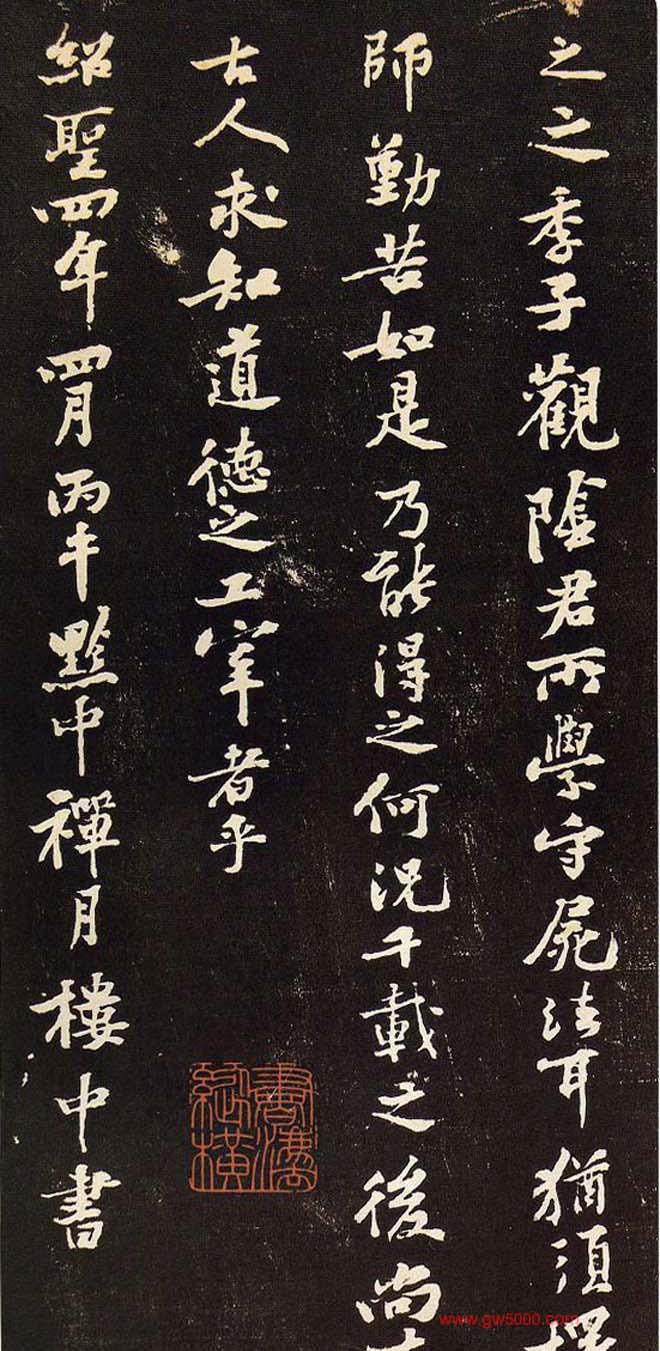 之之季子觀陰君所學守屍法耳猶須擇
師勤苦如是乃能得之何況千載之後尚友
古人求知道德之工宰者乎
紹聖四年四月丙午黔中禪月樓中書
書法縱橫
www.gw5000.com